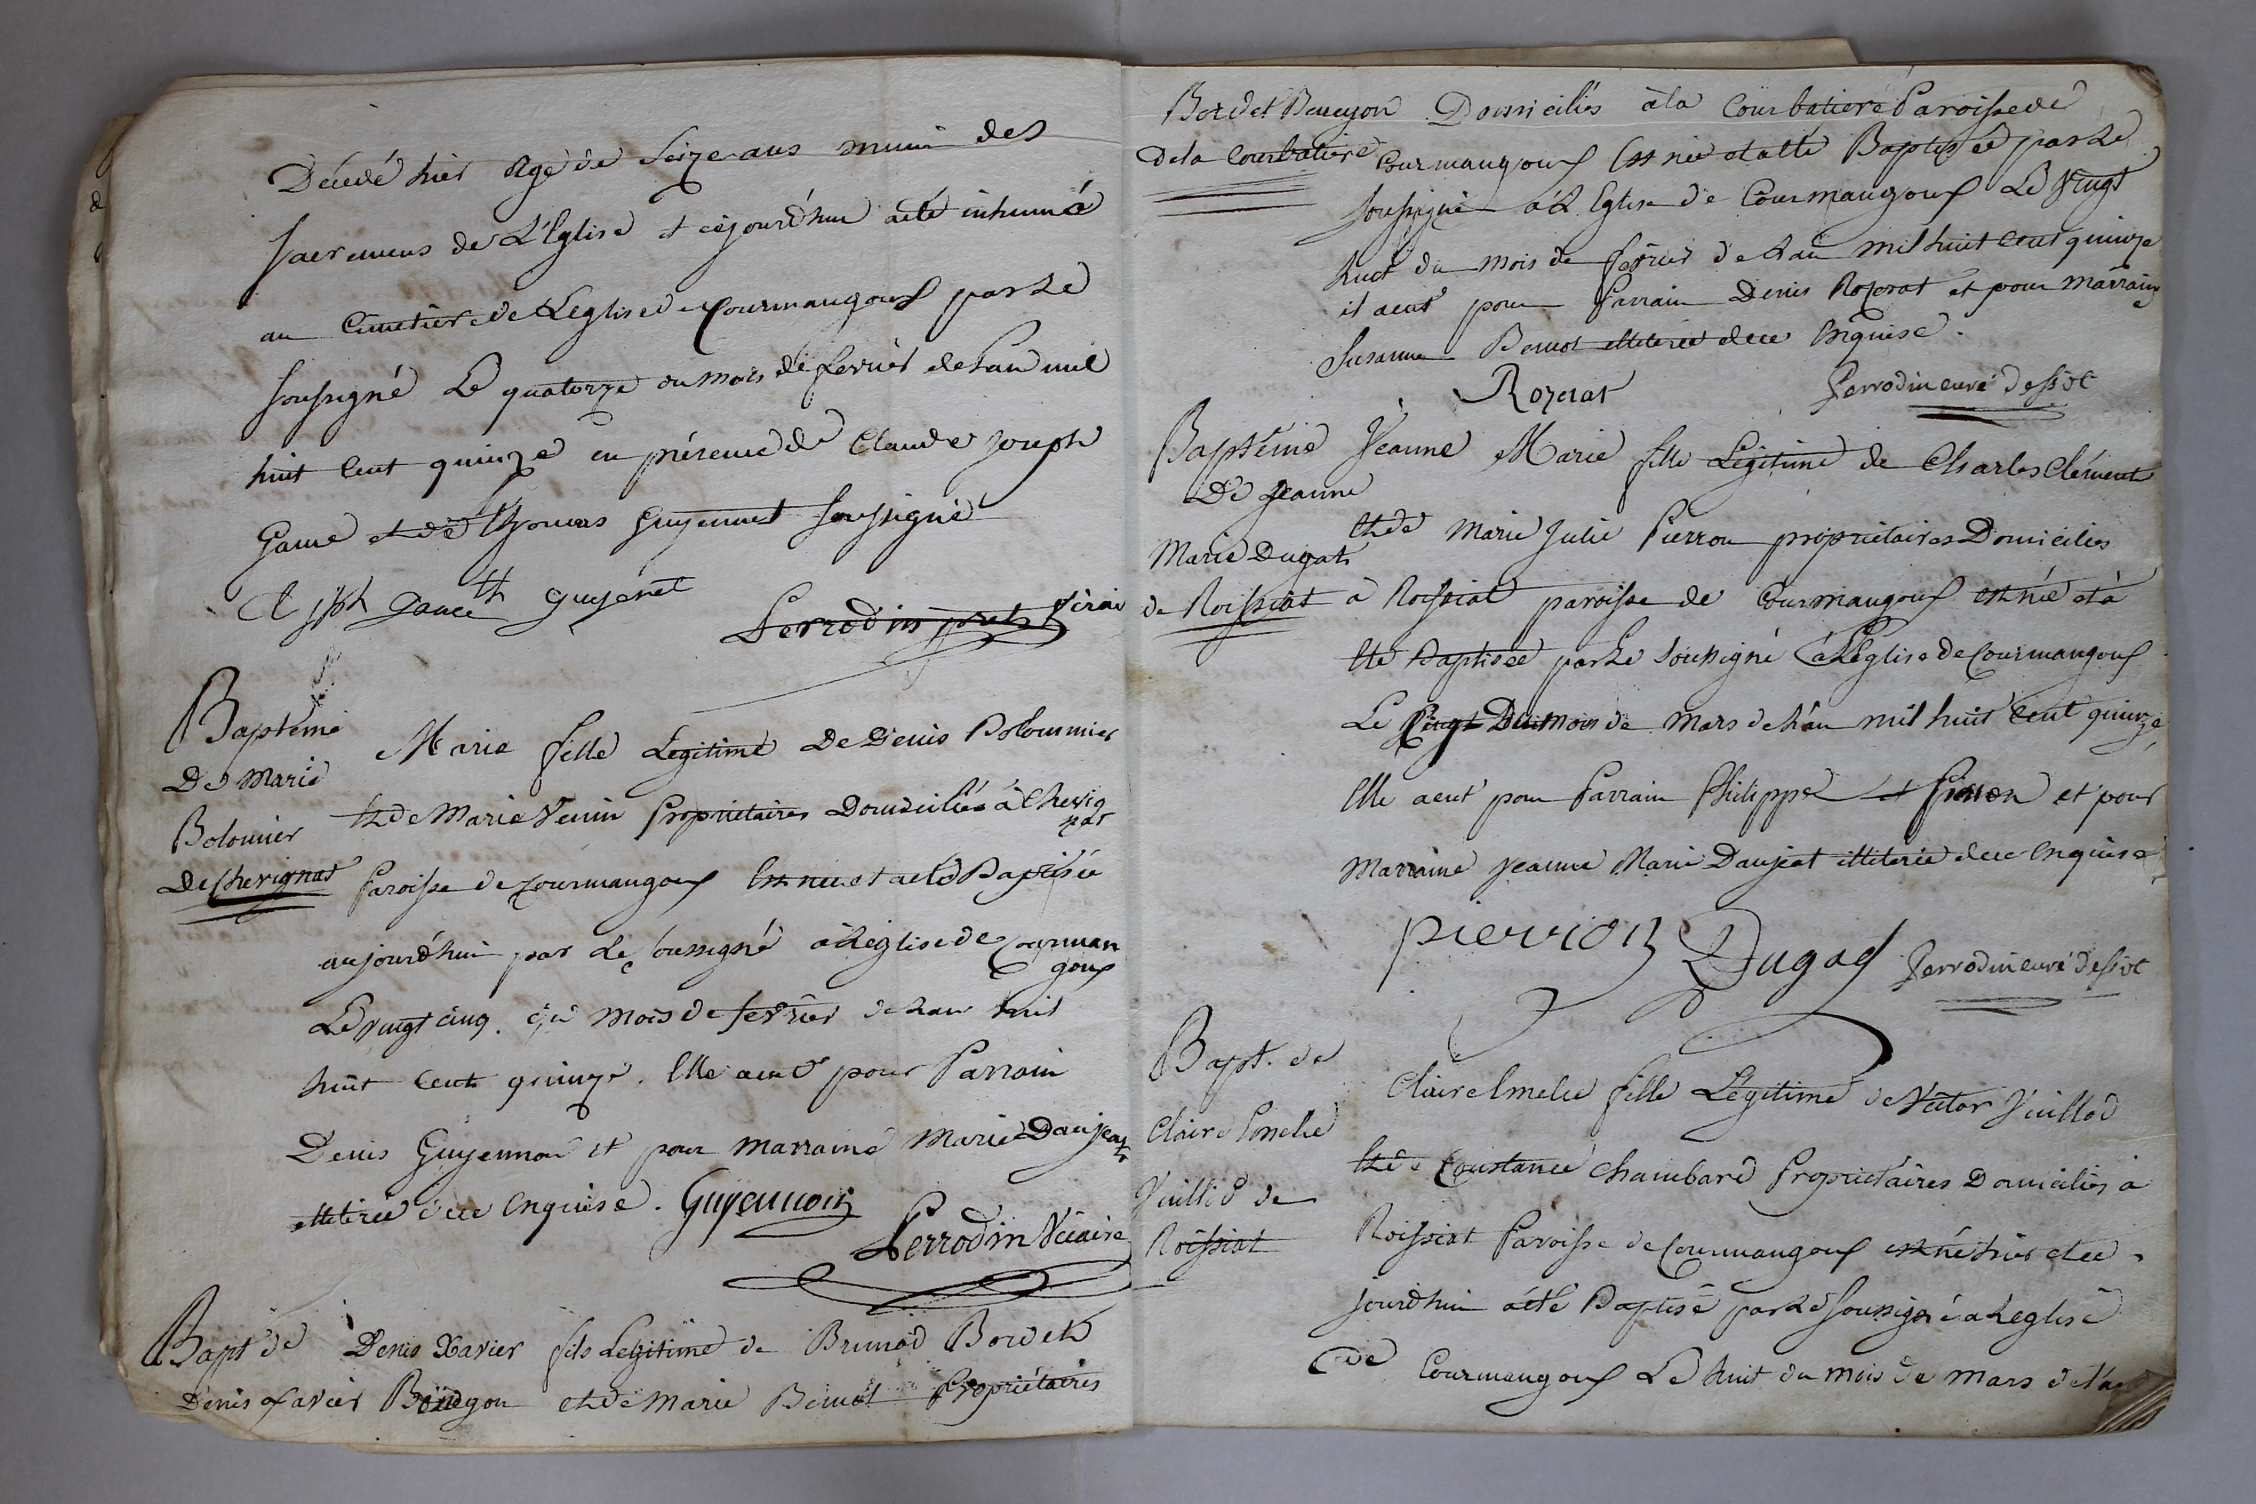 Décédé hier Agé de Seize ans muni des
Sacremens de L'Eglise et cejourd'hui aété inhumé
au Cimetiere de L'eglise de Courmangoux par Le
Soussigné Le quatorze du mois de fevrier de L'an mil
huit Cent quinze en présence de Claude Joseph
et de Thomas Guyennet Soussigné
Cl Jph th guyenet
Perrodin vicaire
Baptême
De Marie
Bolomier
De Chevignat
Marie fille Legitime De Denis Bolommier
et de Marie Venin Propriétaires Domiciliés à Chevig
nat
Paroisse de Courmangoux Est née et a été Baptisée
aujourd'hui par Le soussigné à L'eglise de Courman
goux
Le vingt cinq du mois de fevrier de L'an mil
huit Cent quinze. Elle a eut pour Parrain
Denis Guyennon et pour marraine Marie Daujat
illiterée de ce Enquise. Guyennon
Perrodin Vicaire
Bapt de
Denis Xavier
Denis Xavier fils Legitime de Brunod Bordet
Bouveyon et de Marie Bernot Propriétaires
Bordet Bouveyon
De la Courbatiere
Domiciliés à la Courbatiere Paroisse de
Courmangoux Est née et a été Baptisée par Le
soussigné à L'Eglise de Courmangoux Le Vingt
huit du mois de fevrier de L'an mil huit Cent quinze
il a eut pour Parrain Denis Rozerat et pour Marraine
Susanne Bernot illiterée de ce Enquise.
Rozerat
Perrodin curé desst
Baptême
De Jeanne
Marie Dugat
de Roissiat
Jeanne Marie fille Légitime de Charles Clément
et de Marie Julie Pierron propriétaires Domiciliés
à Roissiat paroisse de Courmangoux est née et à
été Baptisée par Le Soussigné à L'Eglise de Courmangoux
Le Du mois de Mars de L'an mil huit Cent quinze
Elle a eut pour Parrain Philippe Pierron et pour
Marraine Jeanne Marie Daujat illiterée de ce Enquise
pierron Dugas Perrodin curé desst
Bapt. de
Claire Emelie
Vuillod de
Roissiat
Claire Emelie fille Légitime de Victor Vuillod
et de Constance Chambard Propriétaires Domiciliés à
Roissiat Paroisse de Courmangoux est née hier et ce
jourd'hui à été Baptisé par Le Soussigné à L'eglise
de Courmangoux Le huit du mois de Mars de l'an